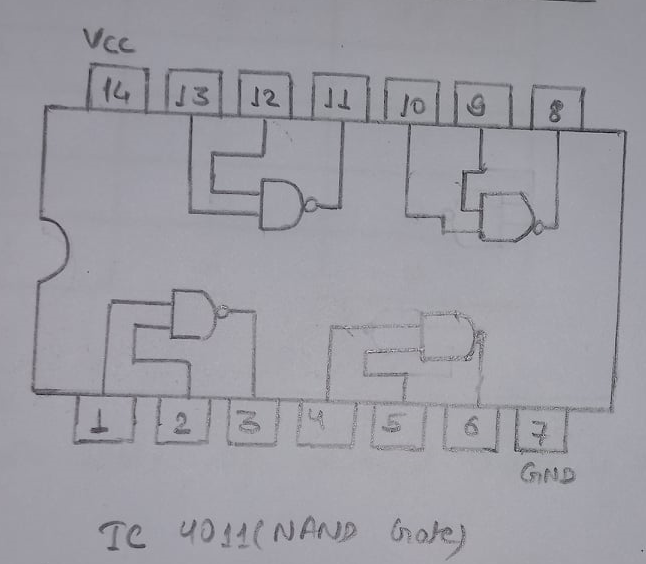 VCC
14 13 12 11 10 9 8
1 2 3 4 5 6 7
GND
IC 4011(NAND Gate)